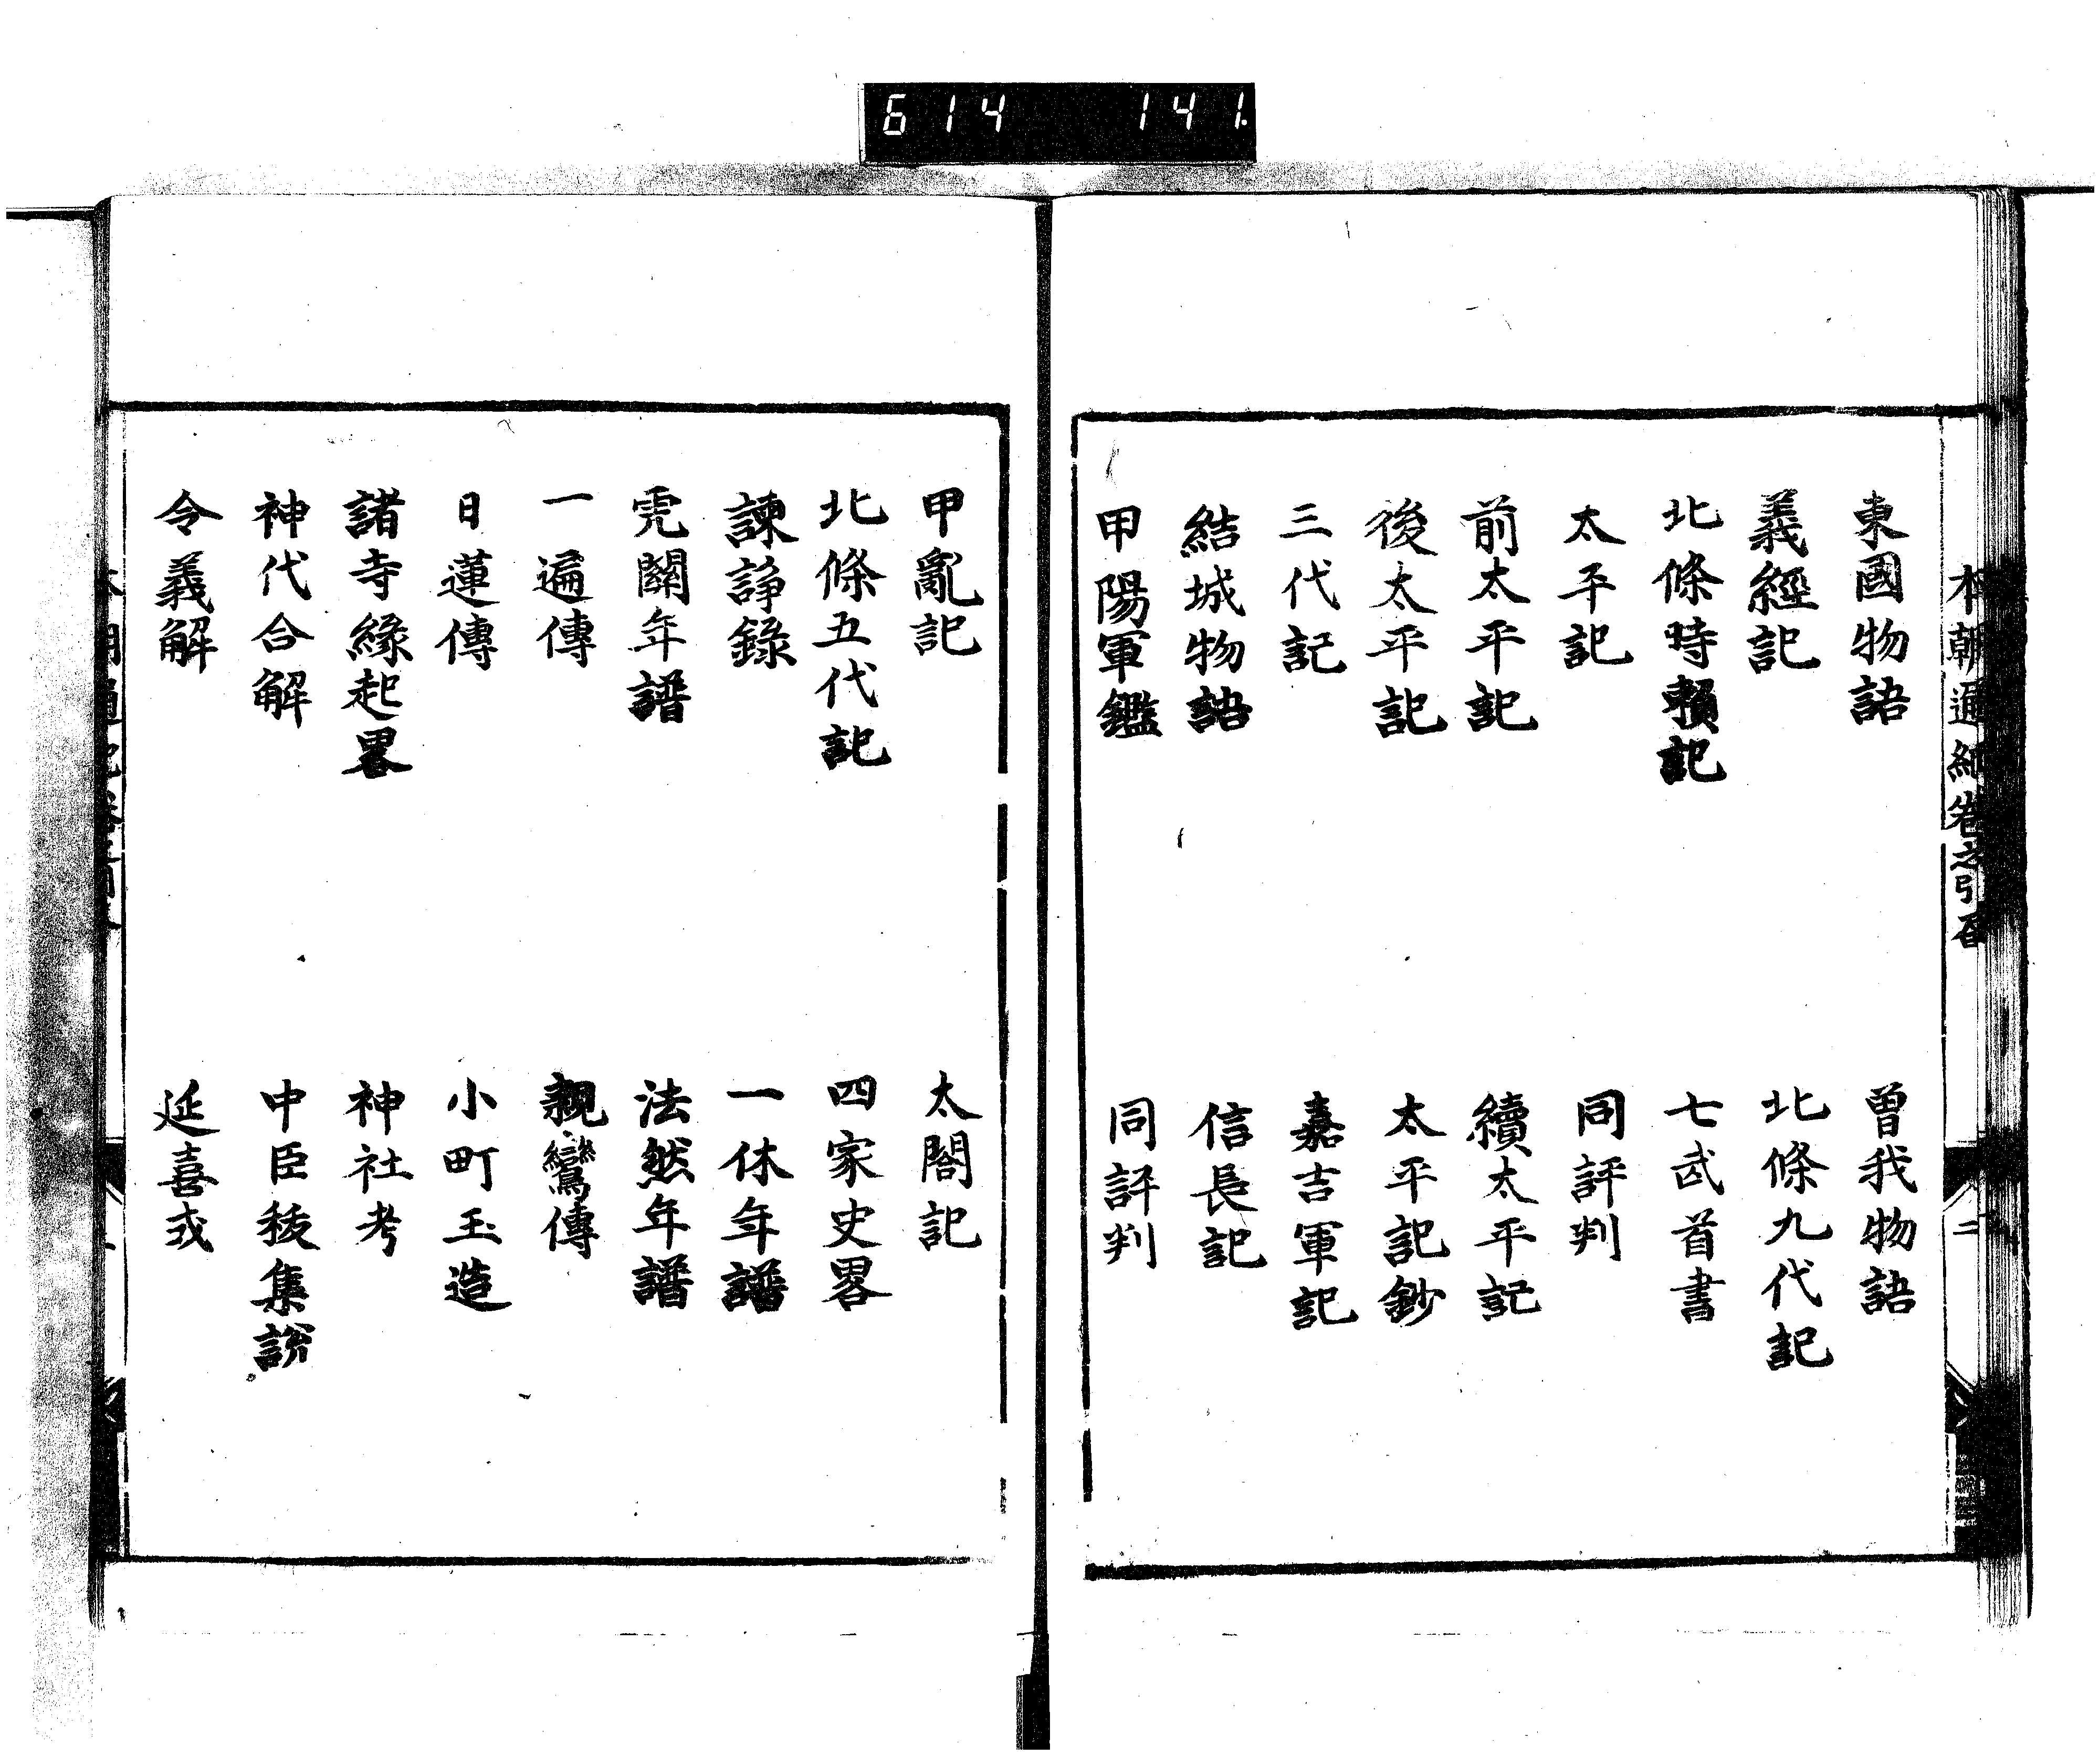 614 141
東國物語 曽我物語
義經記 北條九代記
北條時賴記 七武首書
太平記 同評判
前太平記 續太平記
後太平記 太平記鈔
三代記 嘉吉軍記
結城物語 信長記
甲陽軍鑑 同評判
甲亂記 太閤記
北條五代記 四家史畧
諫諍錄 一休年譜
虎關年譜 法然年譜
一遍傳 親鸞傳
日蓮傳 小町玉造
諸寺緣起畧 神社考
神代合解 中臣秡集說
令義解 延喜式
本朝通紀卷之引 二